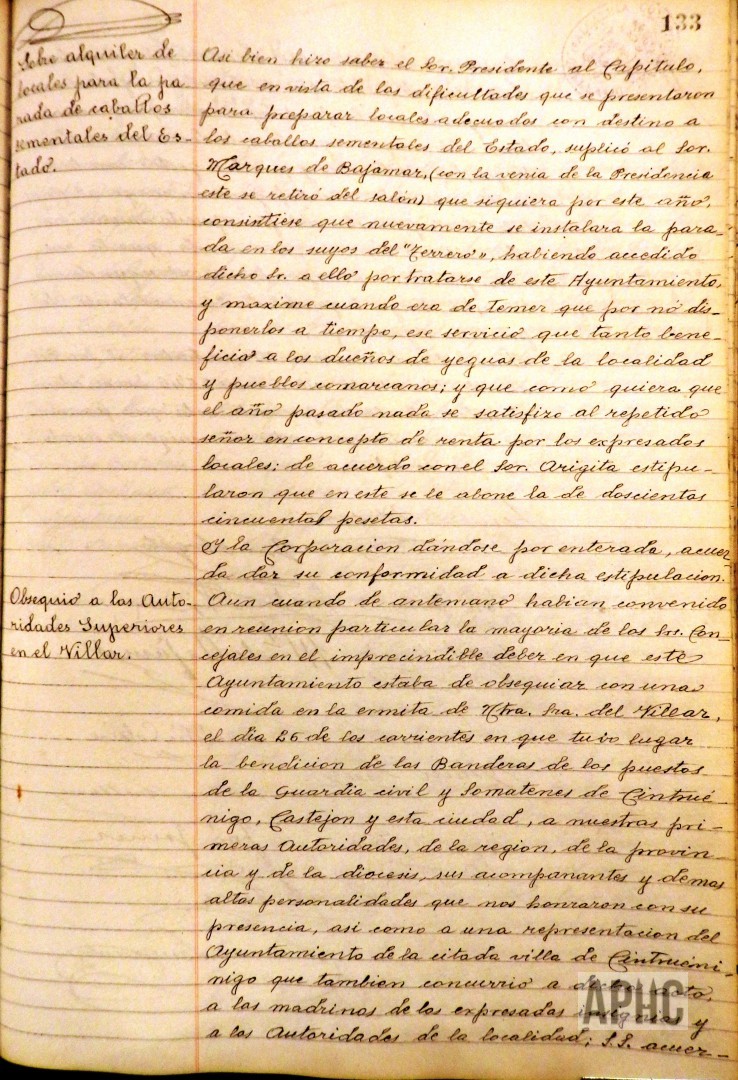 133
Sobre alquiler de
locales para la pa-
rada de caballos
sementales del Es-
tado.
Asi bien hizo saber el Sor. Presidente al Capitulo,
que en vista de las dificultades que se presentaron
para preparar locales adecuados con destino a
los caballos sementales del Estado, suplicó al Sor.
Marques de Bajamar, (con la venia de la Presidencia
este se retiró del salón) que siquiera por este año,
consintiese que nuevamente se instalara la para-
da en los suyos del "Terrero", habiendo accedido
dicho Sr. a ello por tratarse de este Ayuntamiento,
y maxime cuando era de temer que por nó dis-
ponerlos a tiempo, ese servicio que tanto bene-
ficia a los dueños de yeguas de la localidad
y pueblos comarcanos; y que como quiera que
el año pasado nada se satisfizo al repetido
señor en concepto de renta por los expresados
locales; de acuerdo con el Sor. Arigita estipu-
laron que en este se le abone la de doscientas
cincuenta pesetas.
Y la Corporacion dándose por enterada, acuer-
da dar su conformidad a dicha estipulacion.
Obsequio a las Auto-
ridades Superiores
en el Villar.
Aun cuando de antemano habian convenido
en reunion particular la mayoria de los Srs. Con-
cejales en el imprecindible deber en que este
Ayuntamiento estaba de obsequiar con una
comida en la ermita de Ntra. Sra. del Villar,
el dia 26 de los corrientes en que tuvo lugar
la bendicion de las Banderas de los puestos
de la Guardia civil y Somatenes de Cintrué-
nigo, Castejon y esta ciudad, a nuestras pri-
meras Autoridades, de la region, de la provin-
cia y de la diocesis, sus acompanantes y demas
altas personalidades que nos honraron con su
presencia, asi como a una representacion del
Ayuntamiento de la citada villa de Cintruéni-
nigo que tambien concurrió a dicho acto,
a las madrinas de las expresadas insignias y
a las Autoridades de la localidad; S.S. acuer-
APHC